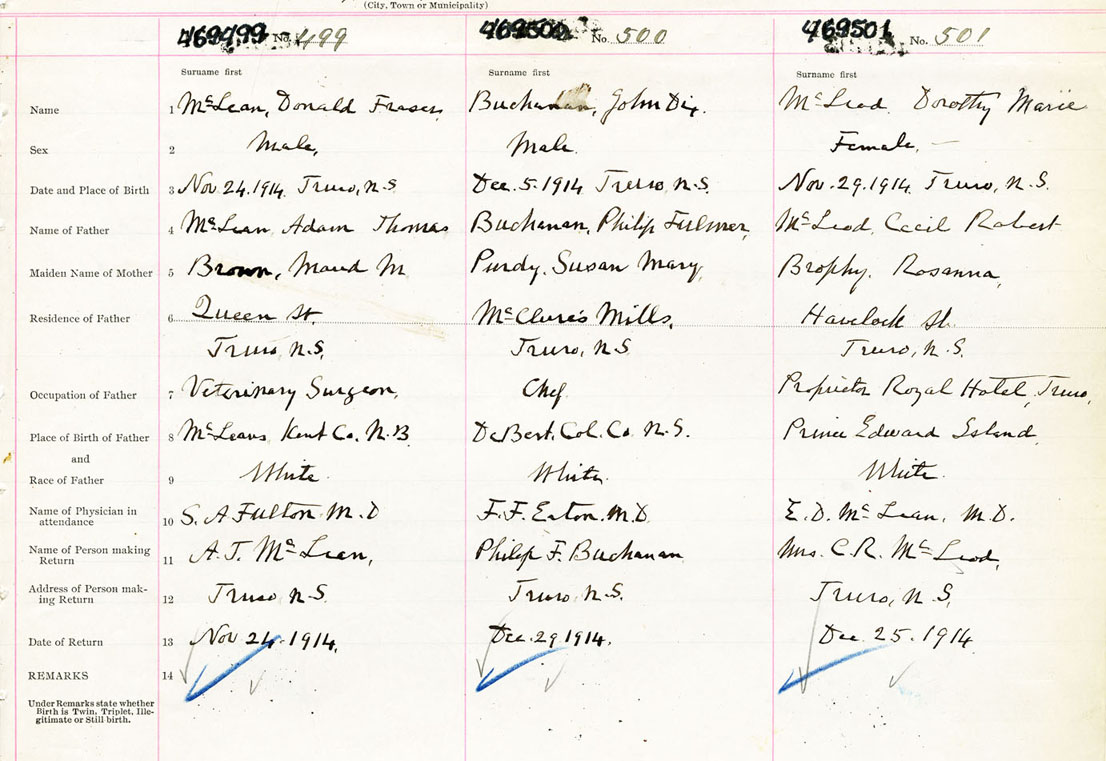 (City, Town or Municipality)
469499 No. 499 469500 No. 500 469501 No. 501
Surname first Surname first Surname first
Name 1 McLean, Donald Fraser, Buchanan, John Dix. McLeod, Dorothy Marie
Sex 2 Male, Male. Female, —
Date and Place of Birth 3 Nov 24.1914. Truro, N.S Dec. 5.1914 Truro, N.S. Nov. 29.1914, Truro, N.S.
Name of Father 4 McLean, Adam Thomas Buchanan, Philip Fulmer, McLeod, Cecil Robert
Maiden Name of Mother 5 Brown, Maud M. Purdy, Susan Mary, Brophy, Rosanna,
Residence of Father 6 Queen St. McClure's Mills, Havelock St.
Truro, N.S. Truro, N.S. Truro, N.S.
Occupation of Father 7 Veterinary Surgeon, Chef Proprietor Royal Hotel, Truro,
Place of Birth of Father 8 McLeans, Kent Co. N.B. DeBert, Col. Co. N.S. Prince Edward Island,
and
Race of Father 9 White. White. White.
Name of Physician in
attendance 10 S. A Fulton M.D F. F. Eaton. M.D. E. D. McLean, M.D.
Name of Person making
Return 11 A. T. McLean, Philip F. Buchanan Mrs. C. R. McLeod,
Address of Person mak-
ing Return 12 Truro, N.S. Truro, N.S. Truro, N.S,
Date of Return 13 Nov 24. 1914. Dec. 29 1914. Dec. 25. 1914
REMARKS 14
Under Remarks state whether
Birth is Twin, Triplet, Ille-
gitimate or Still birth.